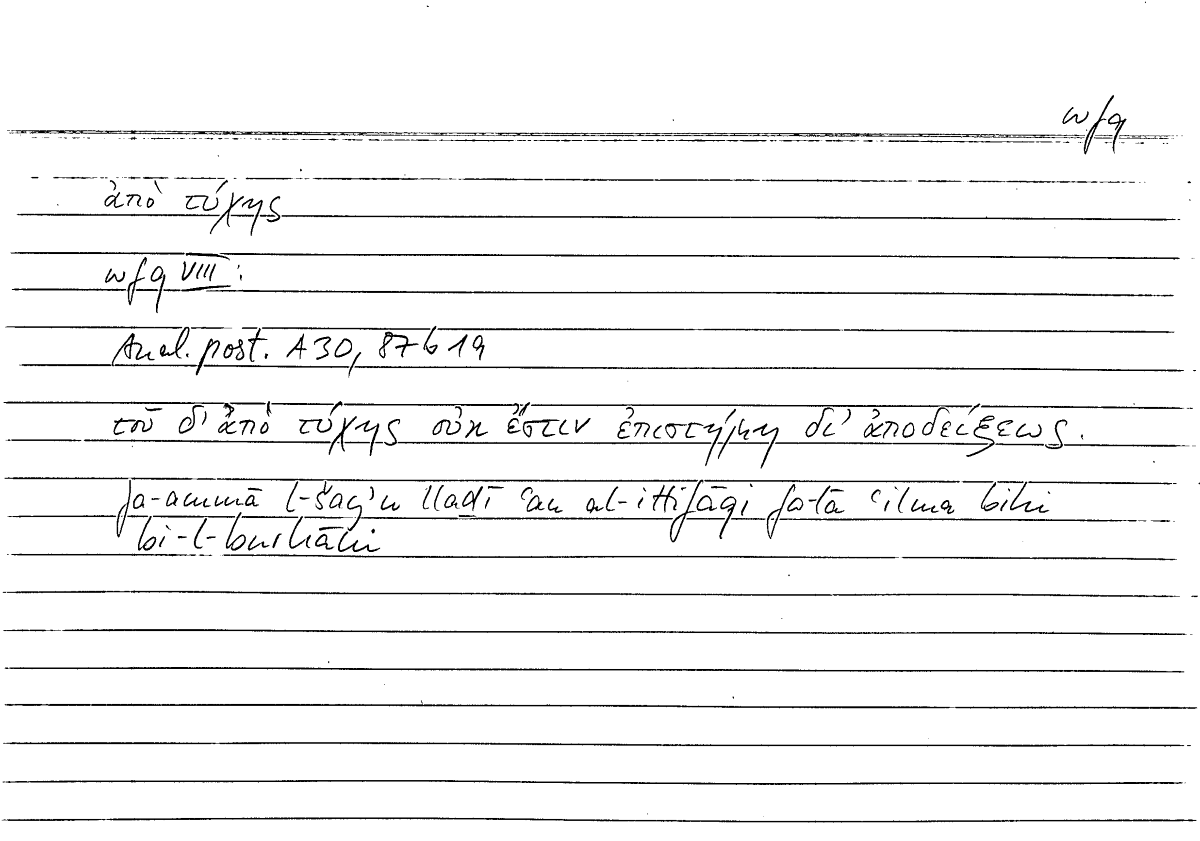 wfq
ἀπὸ τύχης
wfq VIII:
Anal. post. A 30, 87 b 19
τοῦ δ' ἀπὸ τύχης οὐκ ἔστιν ἐπιστήμη δι' ἀποδείξεως.
fa-ammā l-šayʾu lladī ʿan al-ittifāqi fa-lā ʿilma bihi
bi-l-burhāni